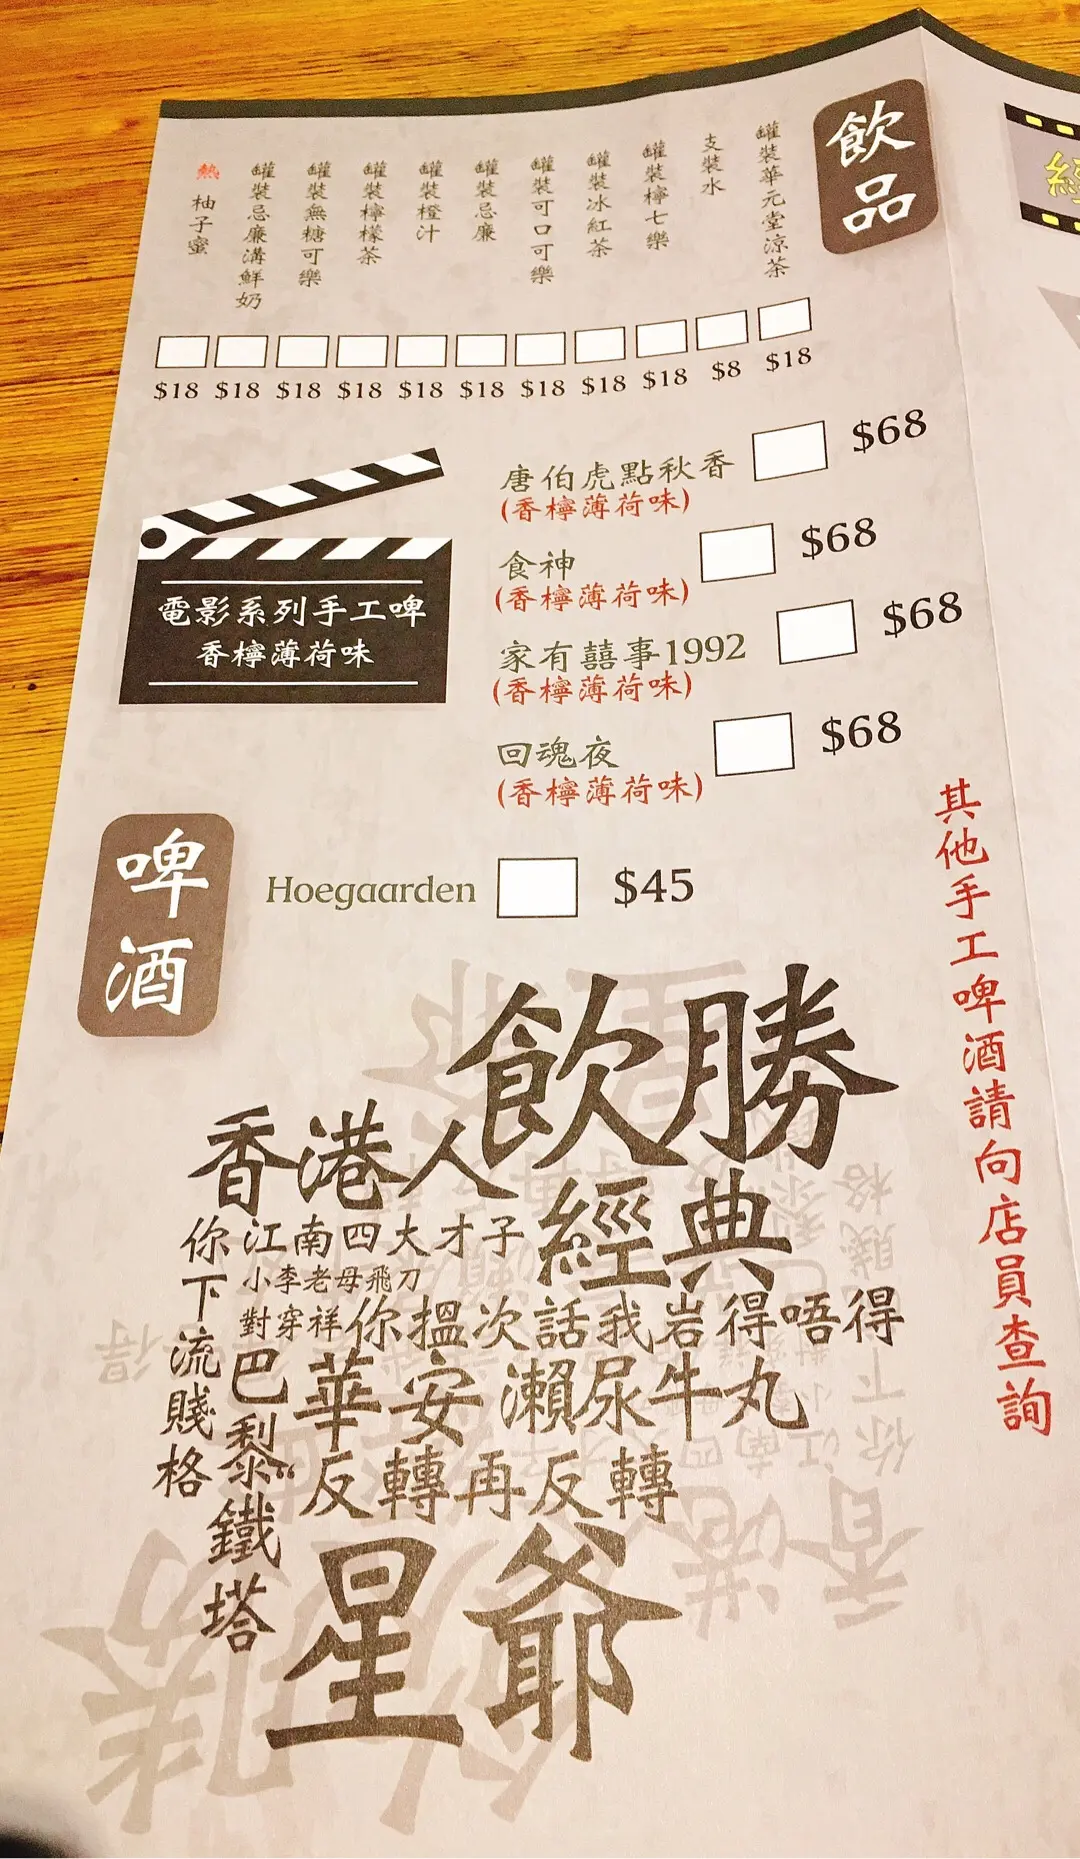 飲品
罐裝華元堂涼茶 $18
支裝水 $8
罐裝檸七樂 $18
罐裝冰紅茶 $18
罐裝可口可樂 $18
罐裝忌廉 $18
罐裝橙汁 $18
罐裝檸檬茶 $18
罐裝無糖可樂 $18
罐裝忌廉溝鮮奶 $18
熱 柚子蜜 $18
電影系列手工啤
香檸薄荷味
唐伯虎點秋香 $68
(香檸薄荷味)
食神 $68
(香檸薄荷味)
家有囍事1992 $68
(香檸薄荷味)
回魂夜 $68
(香檸薄荷味)
其他手工啤酒請向店員查詢
啤酒
Hoegaarden $45
飲勝
香港人
經典
你下流賤格
江南四大才子
小李老母飛刀
對穿祥
你搵次話我岩得唔得
巴黎鐵塔
華安
瀨尿牛丸
“反轉再反轉
星爺